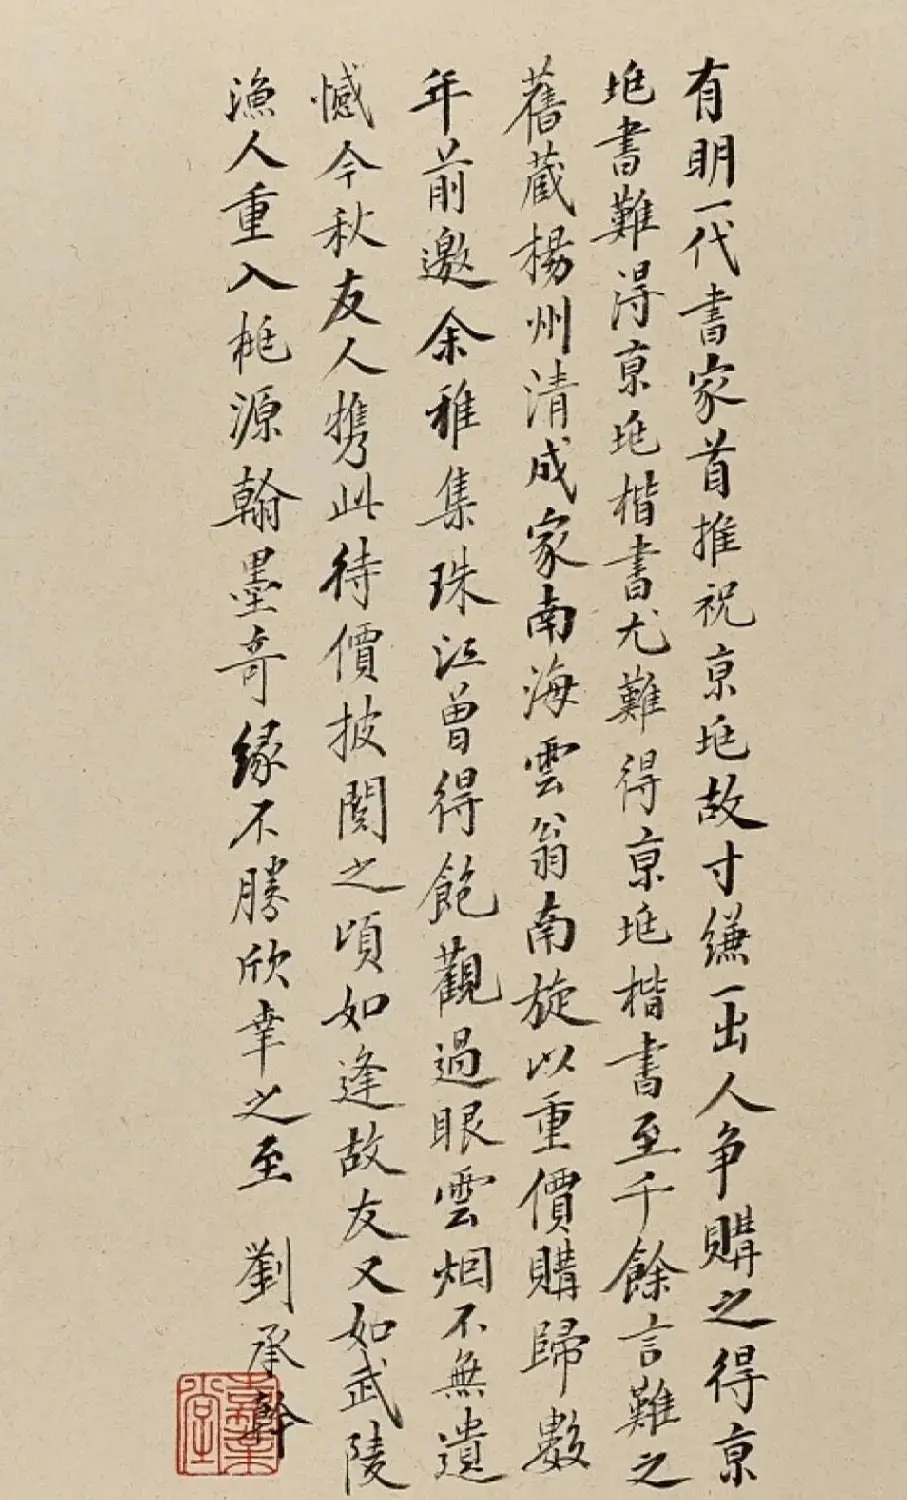 有明一代書家首推祝京兆故寸縑一出人争購之得京
兆書難得京兆楷書尤難得京兆楷書至千餘言難之
舊藏楊州清成家南海雲翁南旋以重價購歸數
年前邀余雅集珠江曾得飽觀過眼雲烟不無遺
憾今秋友人携此待價披閱之頃如逢故友又如武陵
漁人重入桃源翰墨奇緣不勝欣幸之至 劉承幹
嘉業堂